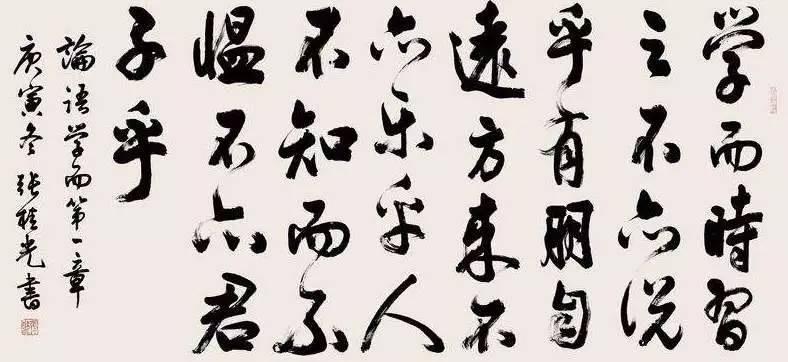 学而時習
之不亦説
乎有朋自
遠方来不
亦乐乎人
不知而不
愠不亦君
子乎
論語学而第一章
庚寅冬张桂光書